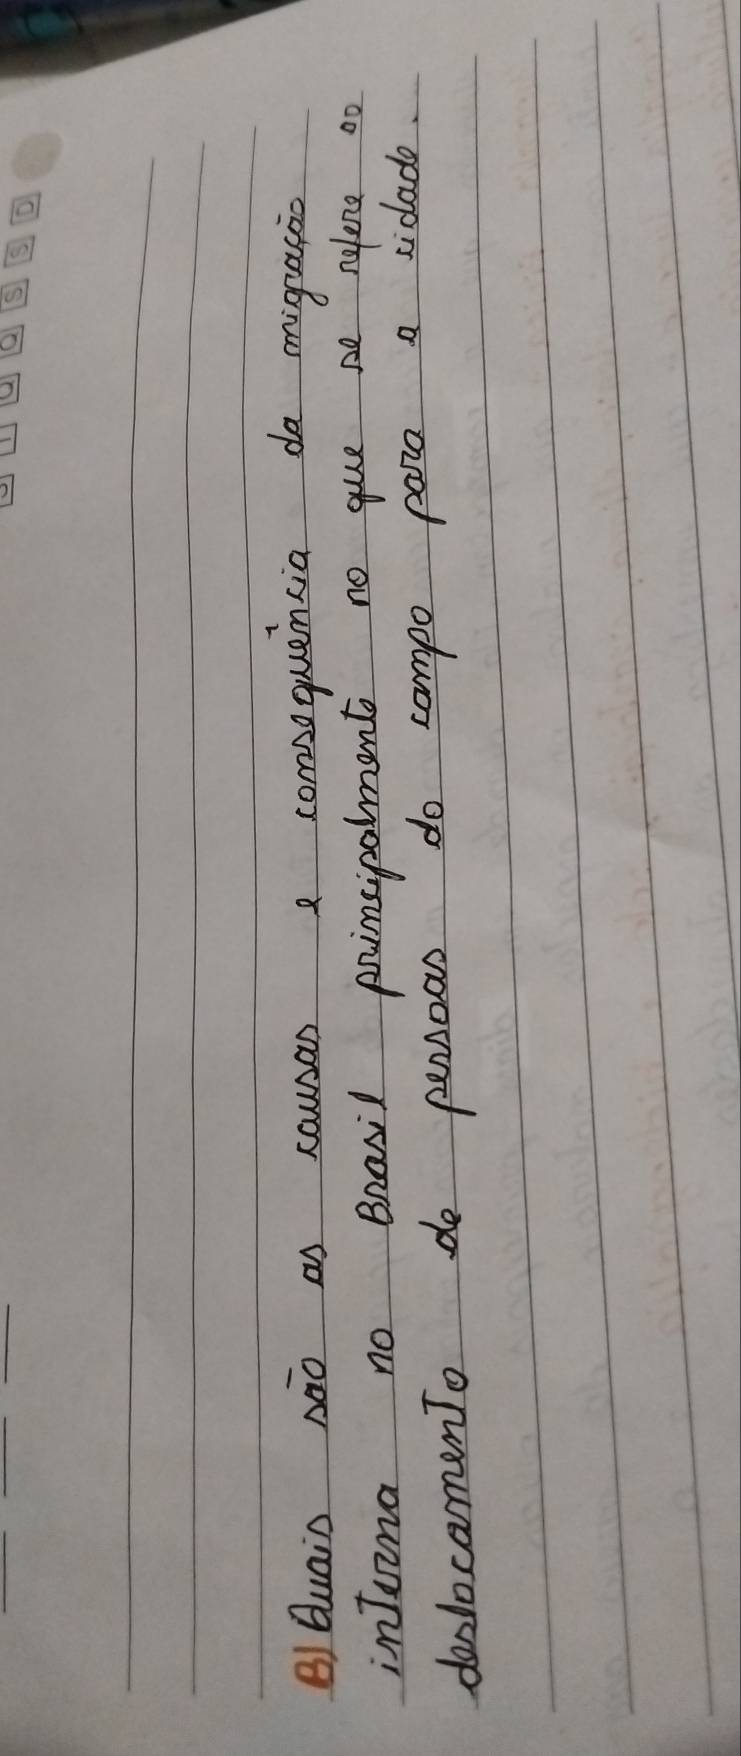 S T Q Q S S D
B) Quais são as causas e consequência da migração
interna no Brasil principalmente no que se refere ao
deslocamento de pessoas do campo para a cidade.